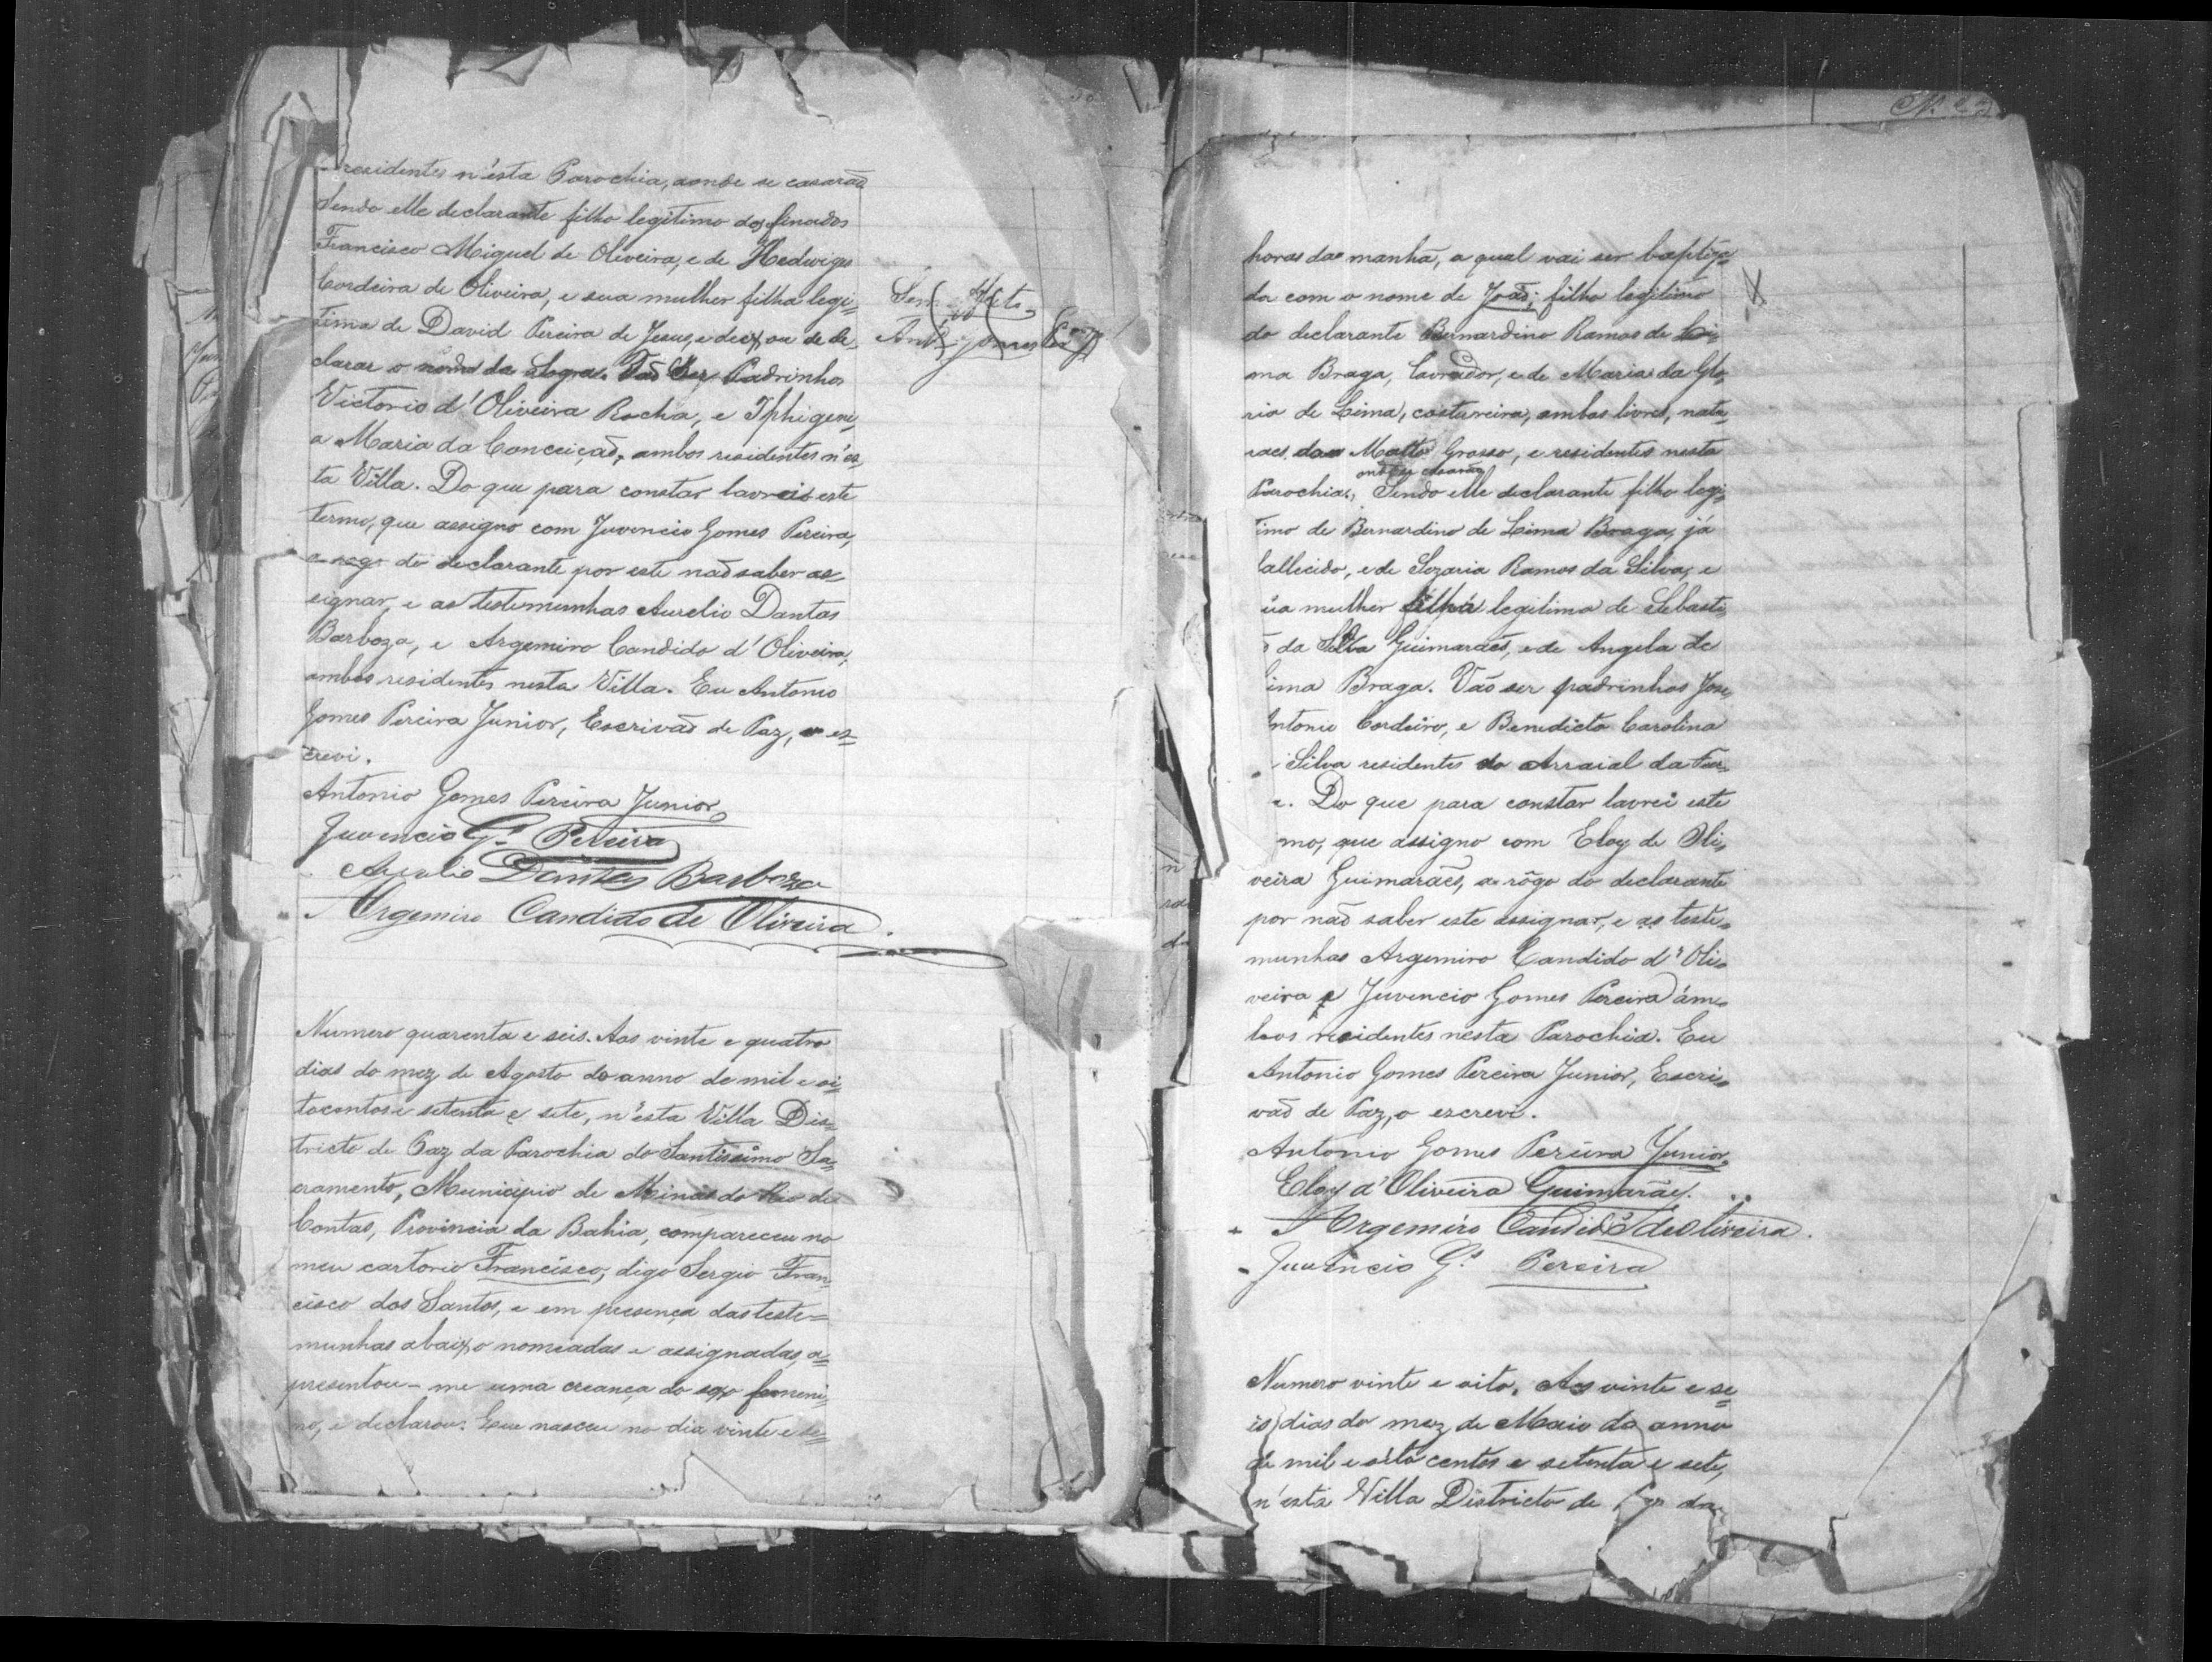 residentes n'esta Parochia, aonde se casarão
Sendo elle declarante filho legitimo dos finados
Francisco Miguel de Oliveira, e de Hedwiges
Cordeira de Oliveira, e sua mulher filha legi-
tima de David Pereira de Jesus, e deixou de de-
clarar o nome da Sogra. Vão Ser Padrinhos
Victorio d'Oliveira Rocha, e Iphigeni-
a Maria da Conceição, ambos residentes n'es-
ta Villa. Do que para constar lavrei este
termo, que assigno com Juvencio Gomes Pereira,
a rogo do declarante por este não saber as-
signar, e as testemunhas Aurelio Dantas
Barboza, e Argemiro Candido d'Oliveira,
ambos residentes nesta Villa. Eu Antonio
Gomes Pereira Junior, Escrivão de Paz, o es-
crevi.
Antonio Gomes Pereira Junior
Juvencio G.s Pereira
Aurelio Dantas Barboza
Argemiro Candido de Oliveira.
Numero quarenta e seis. Aos vinte e quatro
dias do mez de Agosto do anno de mil e oi-
tocentos e setenta e sete, n'esta Villa Dis-
tricto de Paz da Parochia do Santissimo Sa-
cramento, Municipio de Minas do Rio de
Contas, Provincia da Bahia, compareceu no
meu cartorio Francisco, digo Sergio Fran-
cisco dos Santos, e em presença das teste-
munhas abaixo nomeadas e assignadas, a-
presentou-me uma creança do sexo femeni-
no, e declarou: Que nasceu no dia vinte e se-
Sem
Ant. Gomes
N. 23
horas da manhã, a qual vai ser baptiza-
da com o nome de João; filho legitimo
do declarante Bernardino Ramos de Li-
ma Braga, lavrador, e de Maria da Glo-
ria de Lima, costureira, ambos livres, natu-
raes do Matto Grosso, e residentes nesta
onde se casarão
Parochia, Sendo elle declarante filho legi-
timo de Bernardino de Lima Braga, já
fallecido, e de Sezaria Ramos da Silva, e
sua mulher filha legitima de Sebasti-
da Silva Guimarães, e de Angela de
ima Braga. Vão ser padrinhos Jose
Antonio Cordeiro, e Benedicta Carolina
Silva residentes do Arraial da Fur-
e. Do que para constar lavrei este
mo, que assigno com Eloy de Oli-
veira Guimarães, a rôgo do declarante
por não saber este assignar, e as teste-
munhas Argemiro Candido d'Oli-
veira e Juvencio Gomes Pereira ám-
bos residentes nesta Parochia. Eu
Antonio Gomes Pereira Junior, Escri-
vão de Paz, o escrevi.
Antonio Gomes Pereira Junior
Eloy d'Oliveira Guimarães.
Argemiro Candido de Oliveira.
Juvencio G.s Pereira
Numero vinte e oito. Aos vinte e se-
is dias do mez de Maio do anno
de mil e oito centos e setenta e sete,
n'esta Villa Districto de Paz da